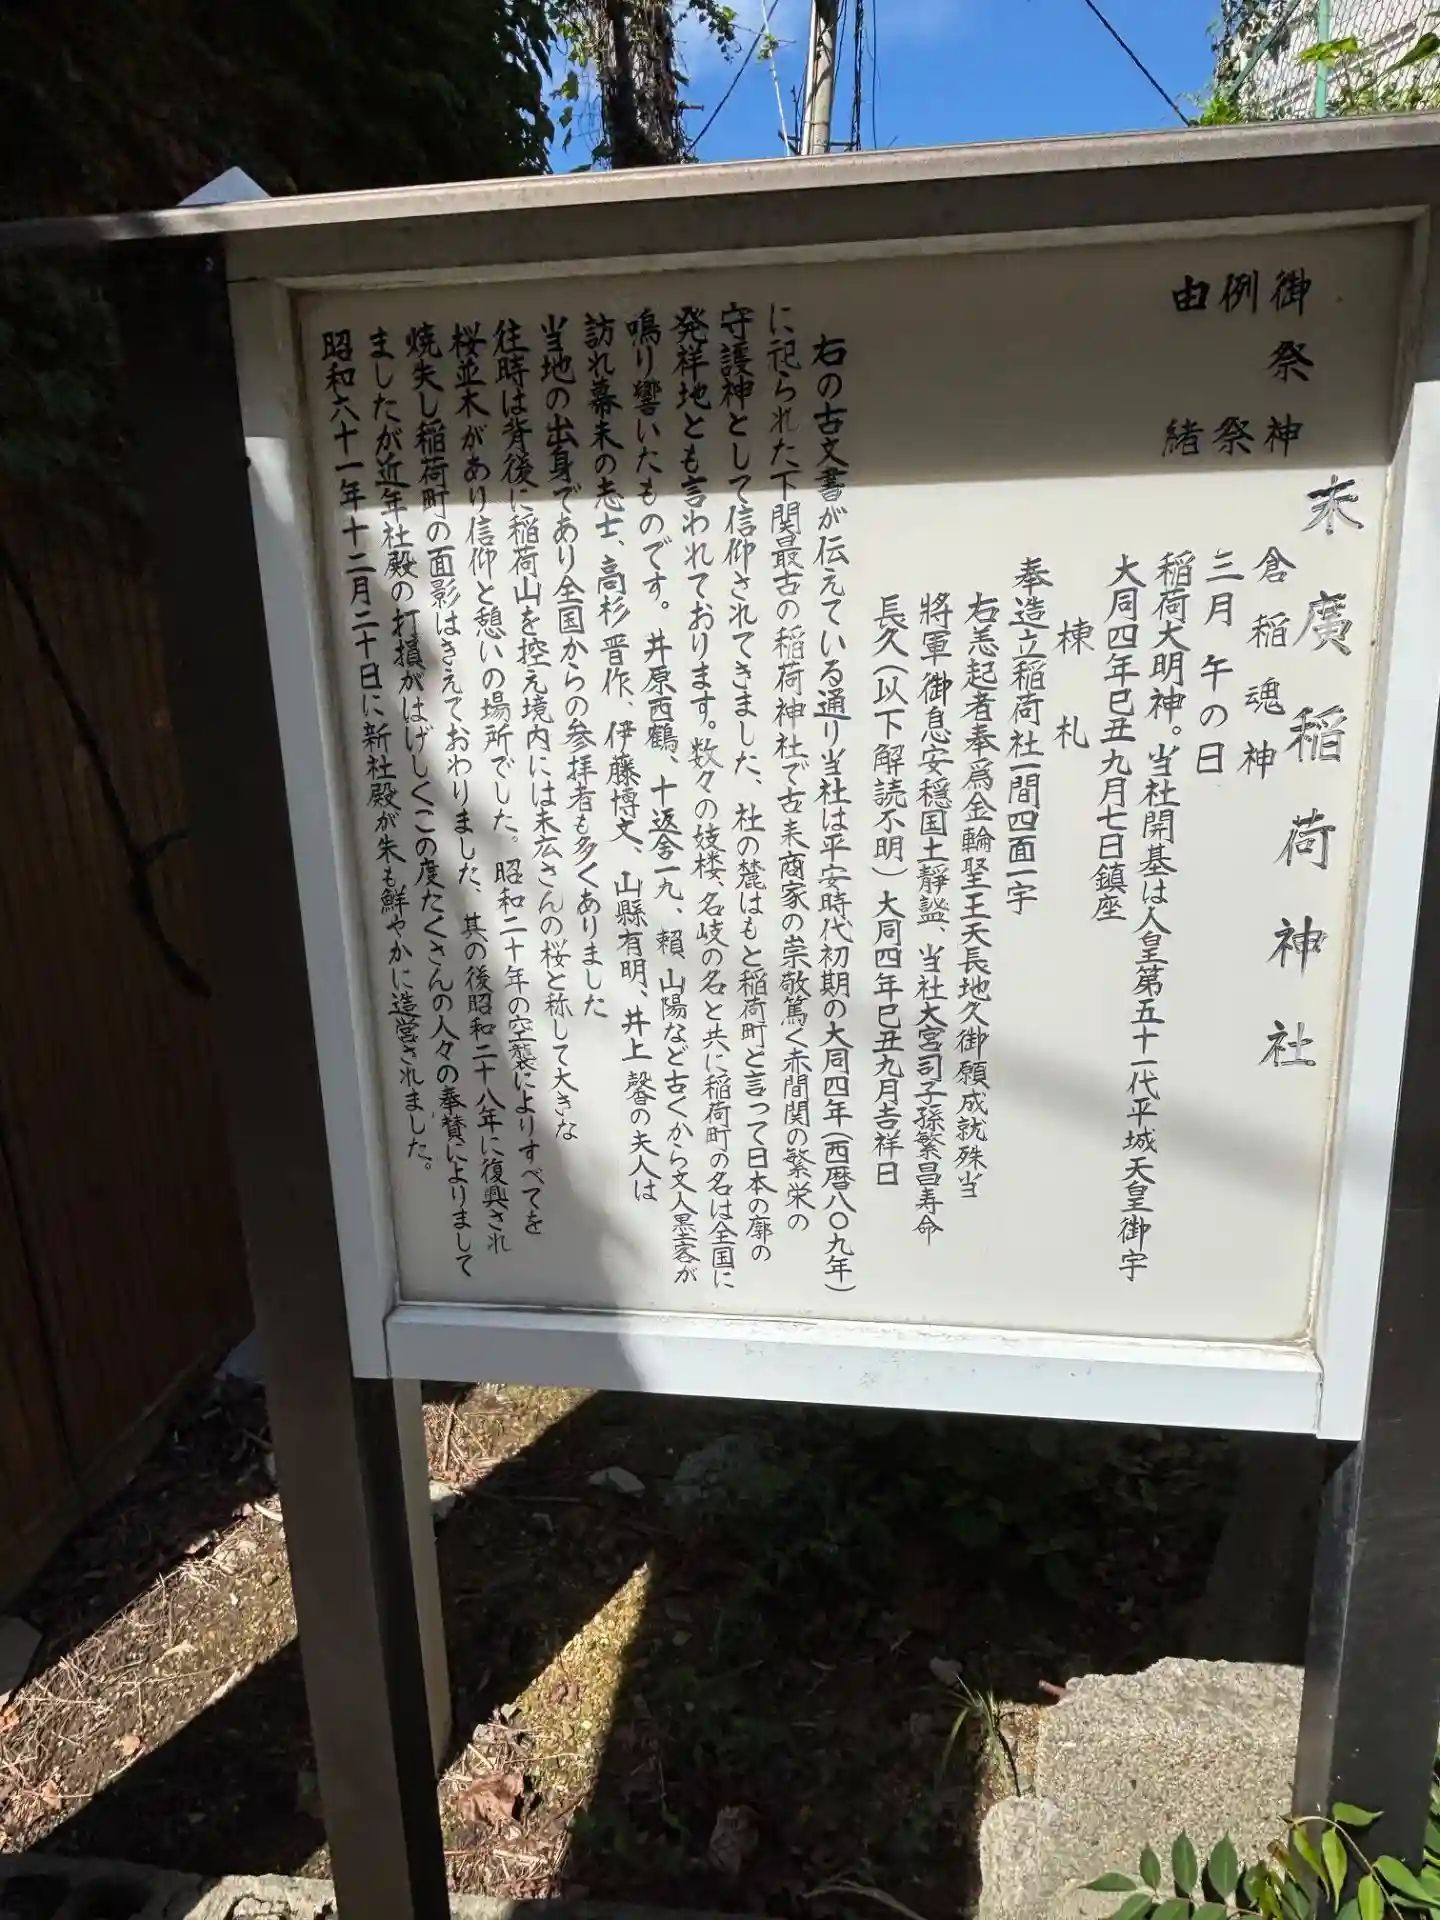 末廣稲荷神社
御祭神 倉稲魂神
例祭 三月午の日
由緒 稲荷大明神。当社開基は人皇第五十一代平城天皇御宇
大同四年巳丑九月七日鎮座
棟札
奉造立稲荷社一間四面一宇
右恙起者奉爲金輪聖王天長地久御願成就殊当
將軍御息安穏国土靜謐、当社大宮司子孫繁昌寿命
長久(以下解読不明)大同四年巳丑九月吉祥日
右の古文書が伝えている通り当社は平安時代初期の大同四年(西暦八〇九年)
に祀られた下関最古の稲荷神社で古来商家の崇敬篤く赤間関の繁栄の
守護神として信仰されてきました、杜の麓はもと稲荷町と言って日本の廓の
発祥地とも言われております。数々の妓楼、名岐の名と共に稲荷町の名は全国に
鳴り響いたものです。井原西鶴、十返舎一九、頼山陽など古くから文人墨客が
訪れ幕末の志士、高杉晋作、伊藤博文、山縣有明、井上馨の夫人は
当地の出身であり全国からの参拝者も多くありました
往時は背後に稲荷山を控え境内には末広さんの桜と称して大きな
桜並木があり信仰と憩いの場所でした。昭和二十年の空襲によりすべてを
焼失し稲荷町の面影はきえておわりました、其の後昭和二十八年に復興され
ましたが近年社殿の打損がはげしくこの度たくさんの人々の奉賛によりまして
昭和六十一年十二月二十日に新社殿が朱も鮮やかに造営されました。